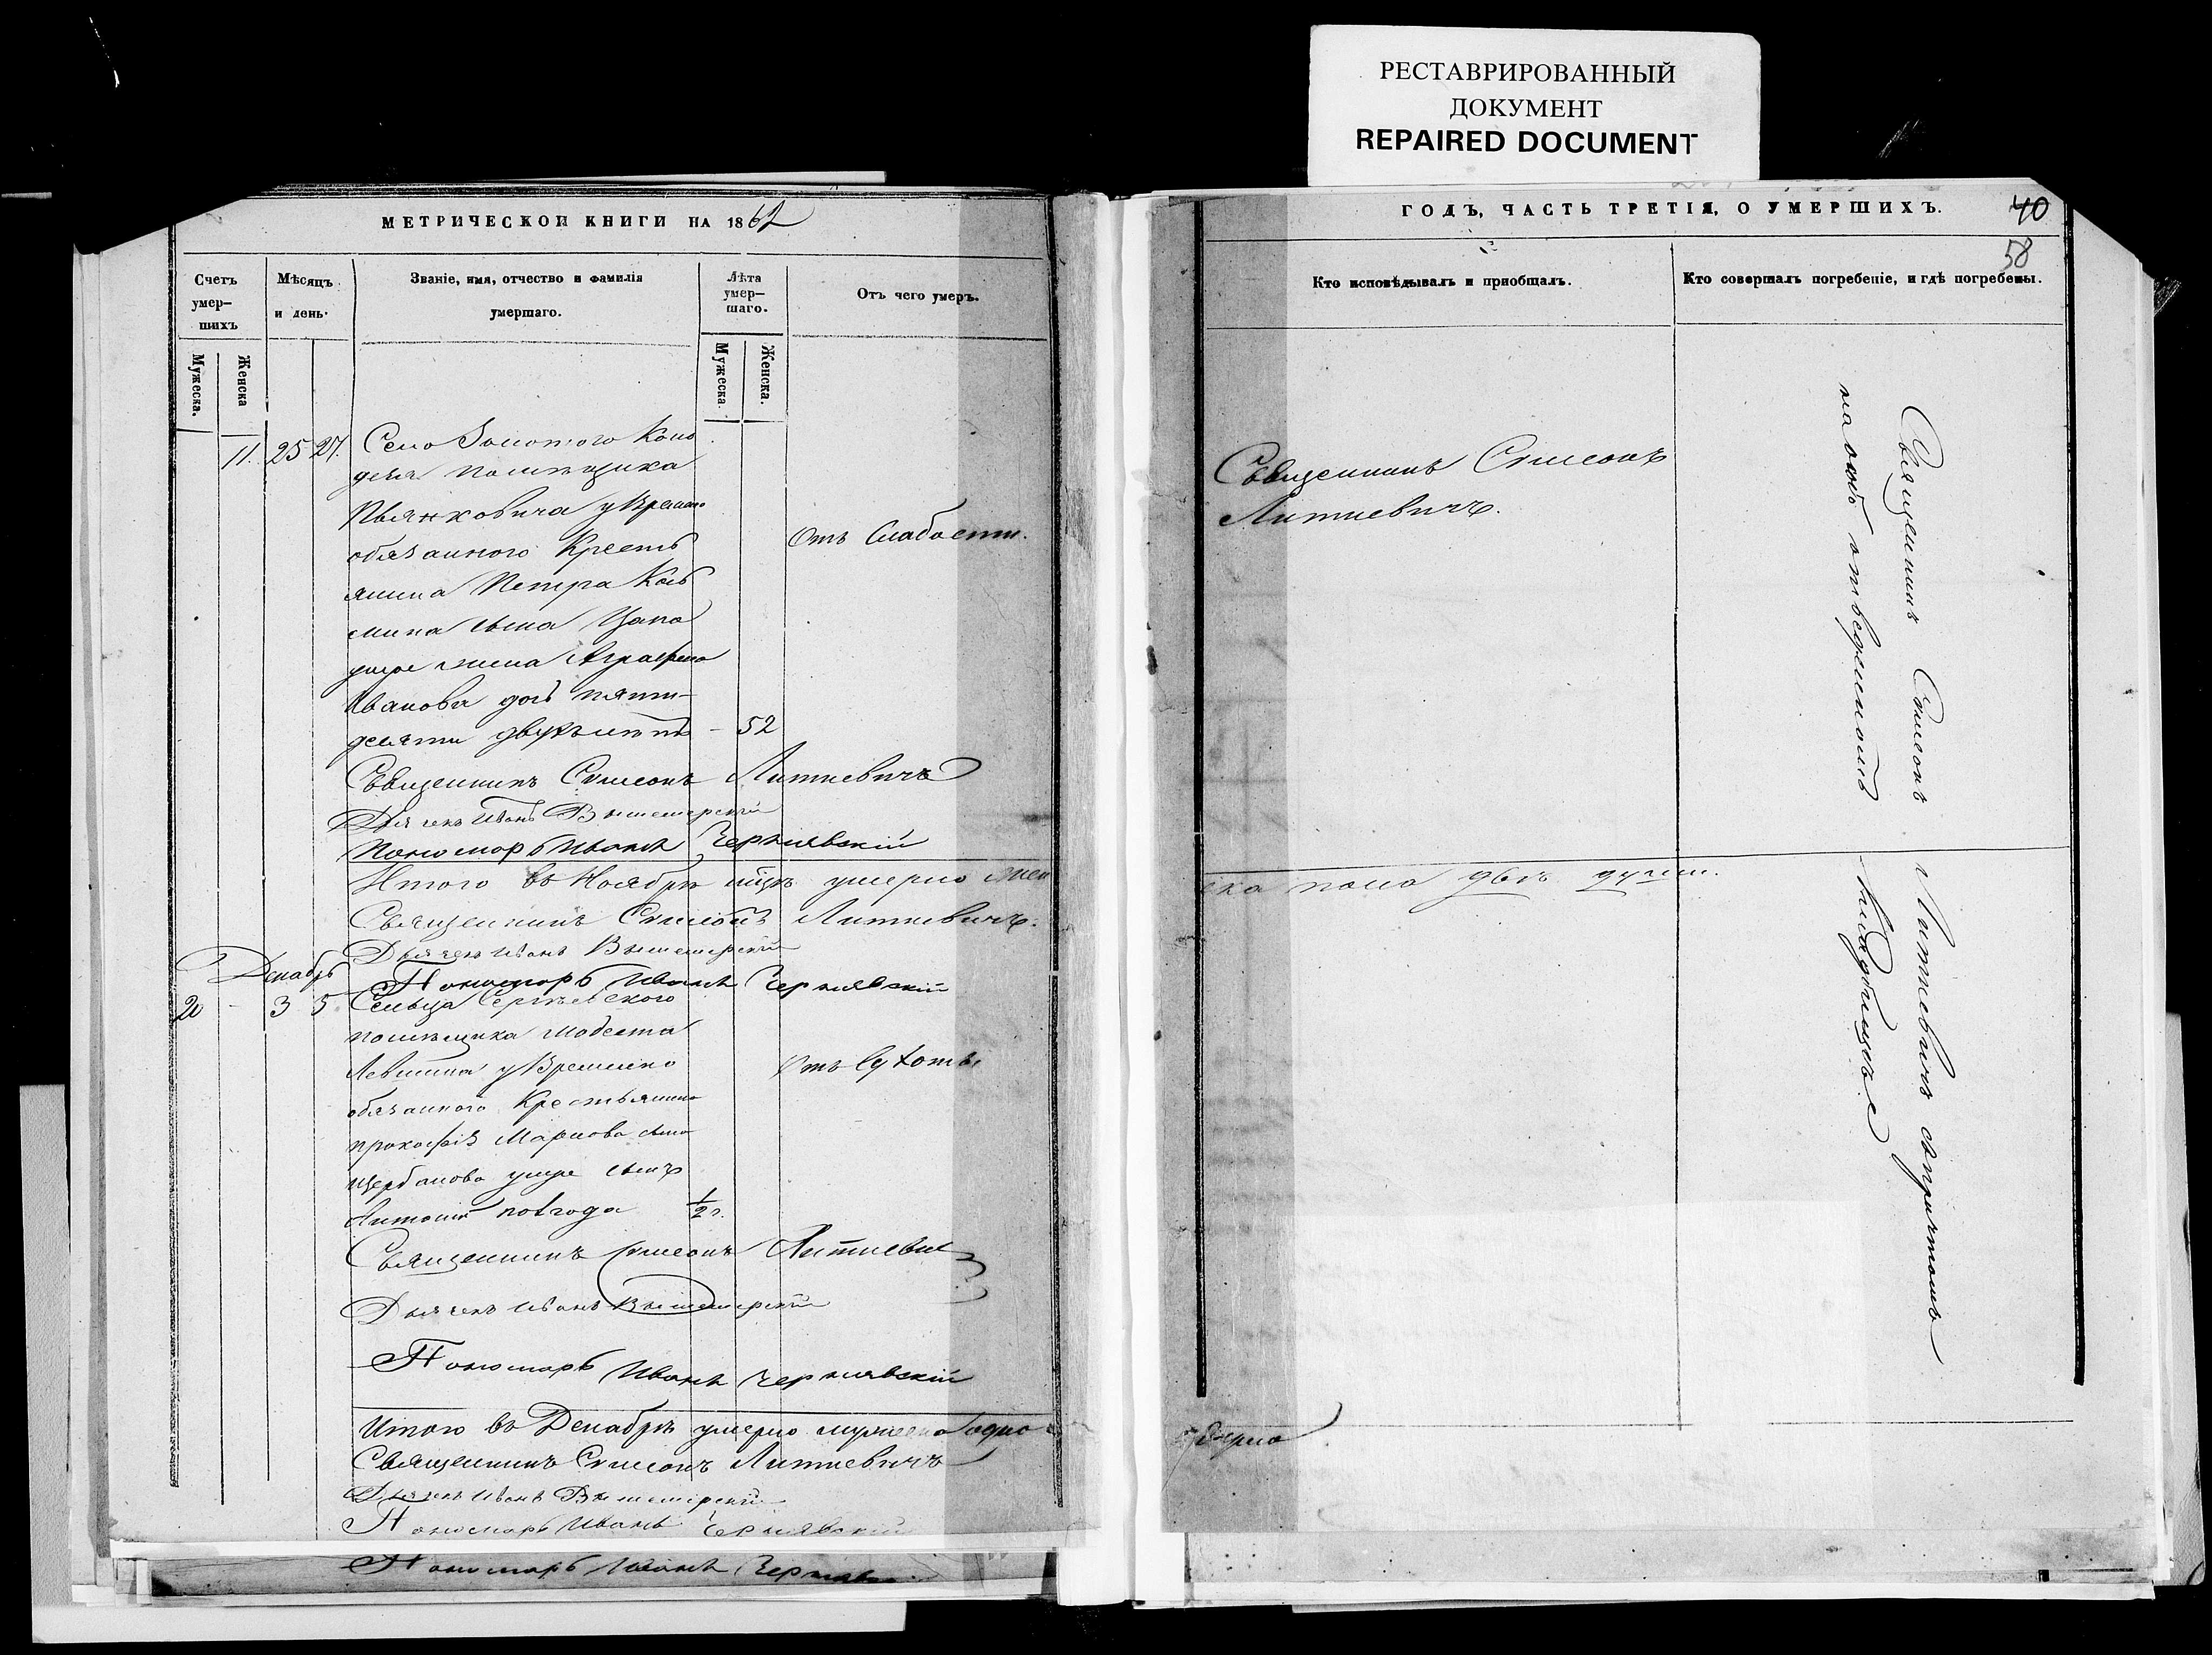 РЕСТАВРИРОВАННЫЙ
ДОКУМЕНТ
REPAIRED DOCUMENT
МЕТРИЧЕСКОЙ КНИГИ НА 1862
Счетъ умер-шихъ
Мѣсяцъ и день.
Званіе, имя, отчество и фамилія умершаго.
Лѣта умер-шаго.
Отъ чего умеръ.
Мужеска.
Женска
Мужеска.
Женска.
11. 25 27.
Село Золотого Коло
дезя помѣщика
Пьянковича у Времено
обязанного Кресть
янина Петра Козь
мина сына
умре жена Агрофена
Иванова дочь пяти-
десяти двухъ лѣтъ - 52
Отъ Слабости.
Священникъ Симеонъ Литкевичъ
Дьячекъ Иванъ
Пономарь Иванъ Чернявскій
Итого въ Ноябрѣ мцѣ умерло жен
Священникъ Симеонъ Литкевичъ.
Дьячекъ Иванъ
Пономарь Иванъ Чернявскій
Декабрь
20 - 3 5
Сельца Сергѣевского
помѣщика Модеста
Левшина у Временно
обязанного Крестьянина
Прокофія Маркова сына
Щербакова умре сынъ
Антоній полгода 1/2 г.
Отъ Сухоты
Священникъ Симеонъ Литкевич
Дьячекъ Иванъ
Пономарь Иванъ Чернявскій
Итого въ Декабрѣ умерло мужеска одно
Священникъ Симеонъ Литкевичъ
Дьячекъ Иванъ
Пономарь Иванъ Чернявскій
Пономарь Иванъ Черняв
ГОДЪ, ЧАСТЬ ТРЕТІЯ, О УМЕРШИХЪ.
40
58
Кто исповѣдывалъ и пріобщалъ.
Кто совершалъ погребеніе, и гдѣ погребены.
Священникъ Симеонъ
Литкевичъ.
ска пола двѣ души.
Священникъ Симеонъ Литкевичъ съ причтомъ
на отведенномъ кладбищѣ